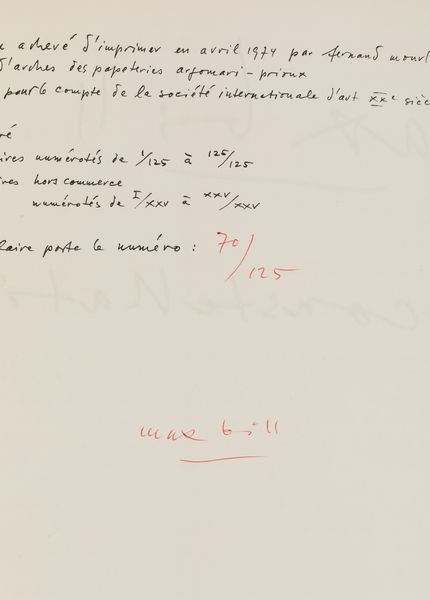 achevé d'imprimer en avril 1974 par fernand mourl
d'arches des papeteries arjomari-prioux
pour le compte de la société internationale d'art XXe sièc
ré
ires numérotés de 1/125 à 125/125
ires hors commerce
numérotés de I/XXV à XXV/XXV
laire porte le numéro : 70/125
max bill